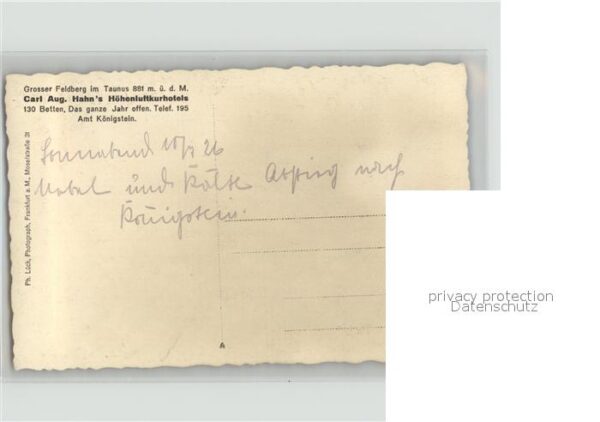 Grosser Feldberg im Taunus 881 m. ü. d. M.
Carl Aug. Hahn's Höhenluftkurhotels
130 Betten, Das ganze Jahr offen. Telef. 195
Amt Königstein.
Ph. Lück, Photograph, Frankfurt a. M., Moselstraße 31
Sonnabend 10/7 26
Nebel und Kälte Abstieg nach
Königstein.
A
privacy protection
Datenschutz